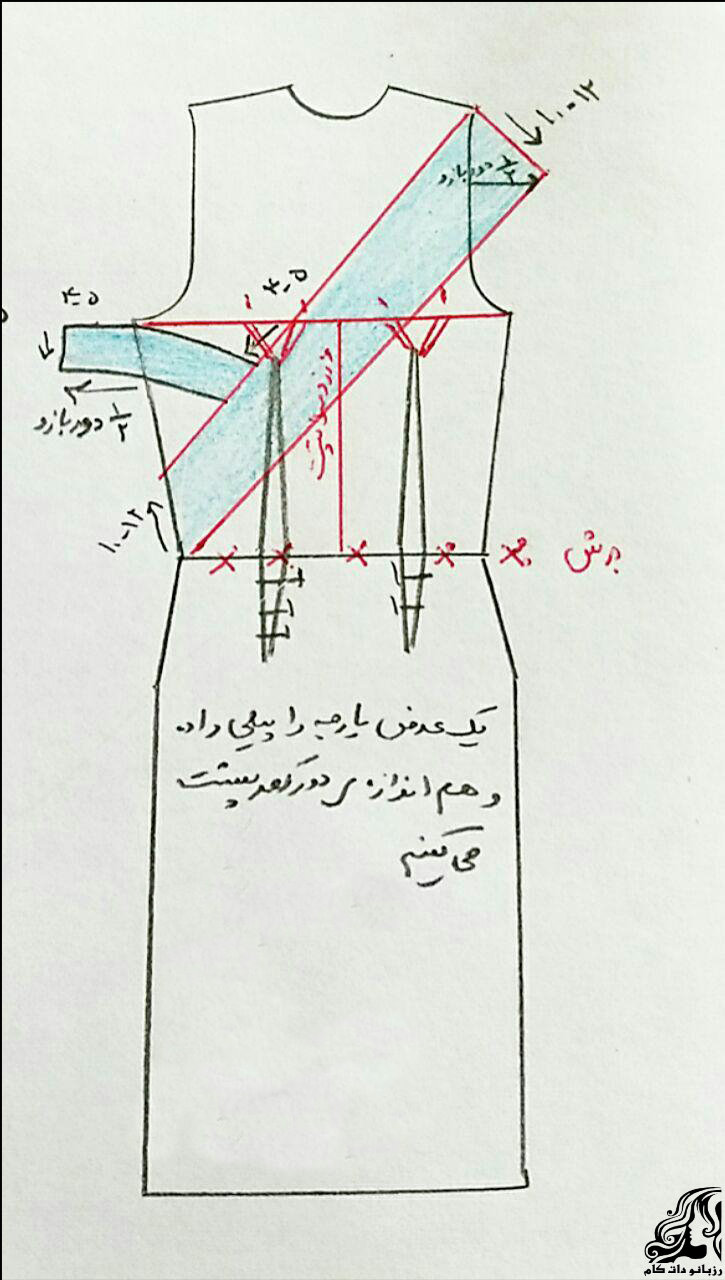 ۱۰-۱۲
۱/۲ دور بازو
۴-۵
۴-۵
۱/۲ دور بازو
۱۰-۱۲
برش
یک عرض پارچه را پیلی داده
و هم اندازه ی دور کمر پشت
می کنیم
رزبانو دات کام